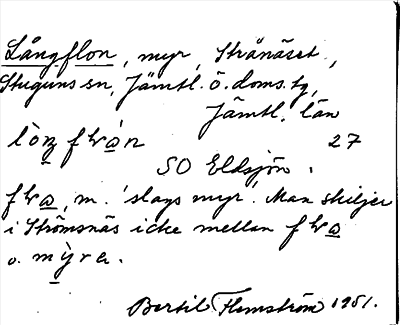 Långflon, myr, Strånäset,
Stuguns sn, Jämtl. ö. doms. tg,
Jämtl. län
27
SO Eldsjön.
m. 'slags myr'. Man skiljer
i Strömsnäs icke mellan
o. mỳra.
Bertil Flemström 1951.